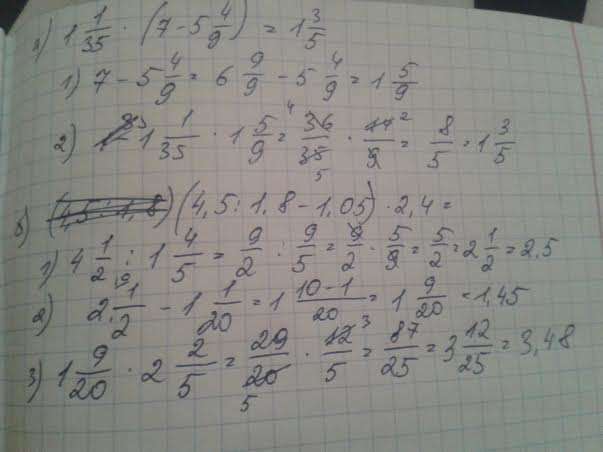 а) 1 1/35 · (7 - 5 4/9) = 1 3/5
1) 7 - 5 4/9 = 6 9/9 - 5 4/9 = 1 5/9
2) 1 1/35 · 1 5/9 = 36/35 · 14/9 = 8/5 = 1 3/5
б) (4,5 : 1,8 - 1,05) · 2,4 =
1) 4 1/2 : 1 4/5 = 9/2 : 9/5 = 9/2 · 5/9 = 5/2 = 2 1/2 = 2,5
2) 2 1/2 - 1 1/20 = 1 10-1/20 = 1 9/20 = 1,45
3) 1 9/20 · 2 2/5 = 29/20 · 12/5 = 87/25 = 3 12/25 = 3,48